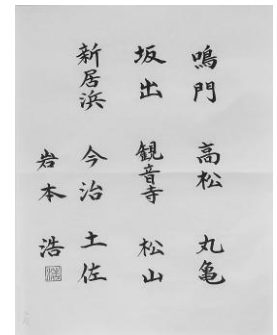 鳴門 高松 丸亀
坂出 観音寺 松山
新居浜 今治 土佐
岩本 浩